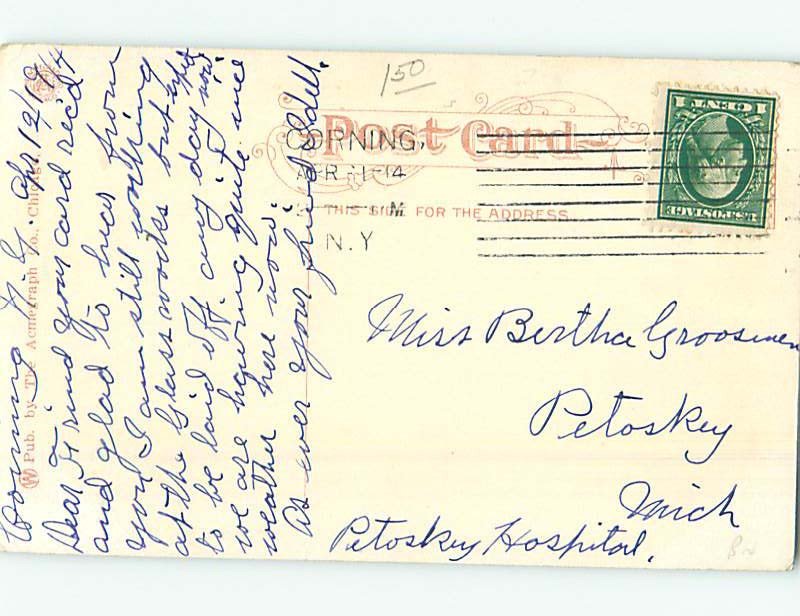 Corning N.Y. Apr 12/1914
Dear Friend your card rec'd
and glad to hear from
you I am still working
at the Glass works but expect
to be laid off any day now
we are having quite nice
weather here now.
As ever your friend Dell.
Pub. by The Acmegraph Co., Chicago
1 50
Post Card
CORNING,
APR 14
M
N.Y
THIS SIDE FOR THE ADDRESS
U.S. POSTAGE
1 CENT 1
Miss Bertha Groosmen
Petoskey
Mich
Petoskey Hospital.